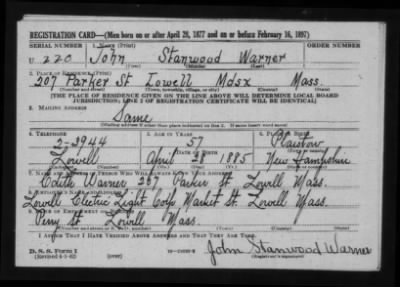 REGISTRATION CARD—(Men born on or after April 28, 1877 and on or before February 16, 1897)
SERIAL NUMBER 1. NAME (Print) ORDER NUMBER
U 220 John Stanwood Warner
2. PLACE OF RESIDENCE (Print)
207 Parker St Lowell Mdsx Mass.
(Number and street) (Town, township, village, or city) (County) (State)
[THE PLACE OF RESIDENCE GIVEN ON THE LINE ABOVE WILL DETERMINE LOCAL BOARD
JURISDICTION; LINE 2 OF REGISTRATION CERTIFICATE WILL BE IDENTICAL]
3. MAILING ADDRESS
Same
[Mailing address if other than place indicated on line 2. If same insert word same]
4. TELEPHONE 5. AGE IN YEARS 6. PLACE OF BIRTH
2-2944 57 Plaistow
DATE OF BIRTH
Lowell April 28 1885 New Hampshire
(Exchange) (Number) (Mo.) (Day) (Yr.) (State or country)
7. NAME AND ADDRESS OF PERSON WHO WILL ALWAYS KNOW YOUR ADDRESS
Warner Parker St. Lowell Mass.
8. EMPLOYER'S NAME AND ADDRESS
Lowell Electric Light Corp Market St. Lowell Mass.
9. PLACE OF EMPLOYMENT OR BUSINESS
Perry St. Lowell Mass.
(Number and street or R. F. D. number) (Town) (County) (State)
I AFFIRM THAT I HAVE VERIFIED ABOVE ANSWERS AND THAT THEY ARE TRUE.
D. S. S. Form 1
(Revised 4-1-42) (over)
John Stanwood Warner
(Registrant's signature)